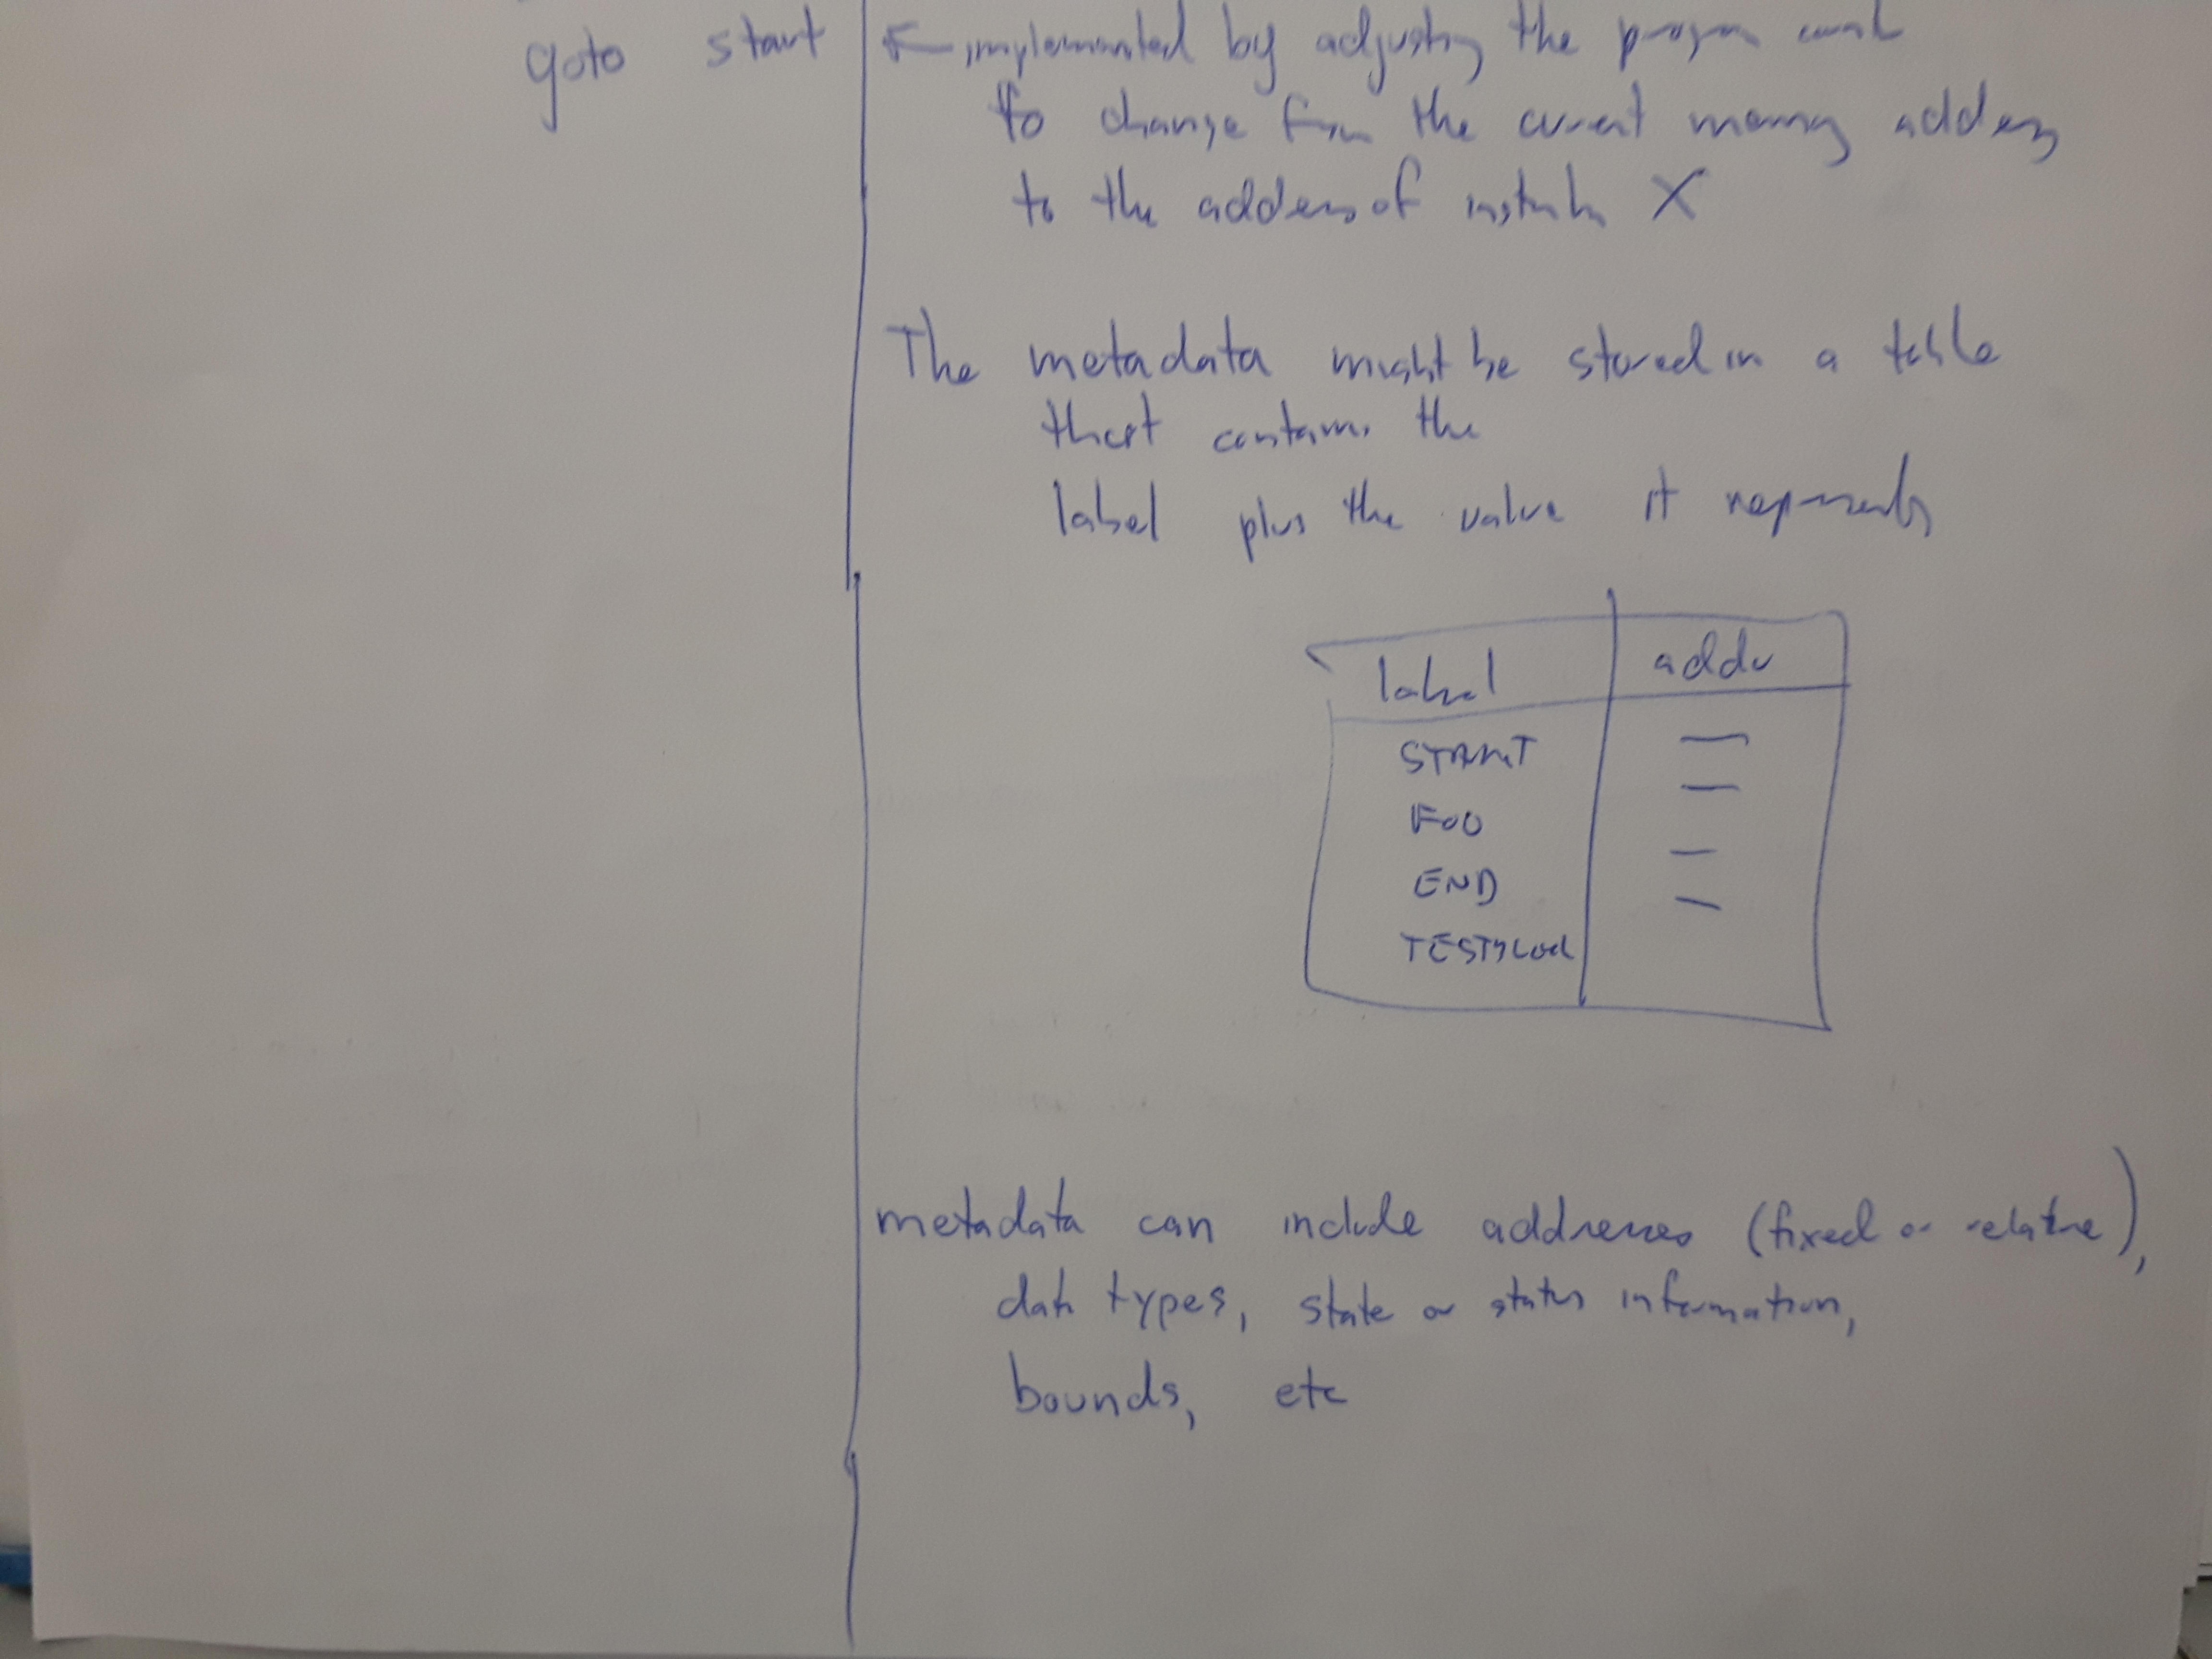 goto start ← implemented by adjusting the program
to change from the current memory address
to the address of X
The metadata might be stored in a table
that contains the
label plus the value it represents
label addr
START —
FOO —
END —
—
metadata can include addresses (fixed or relative),
data types, state or status information,
bounds, etc